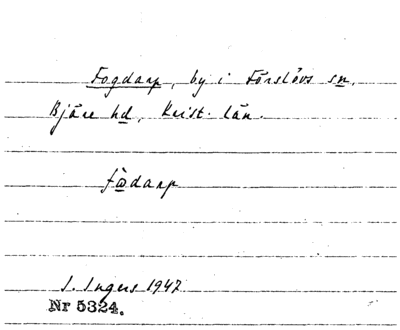 Fogdarp, by i Förslövs sn,
Bjäre hd, Krist. län.
fòdarp
I. Ingers 1947
Nr 5324.